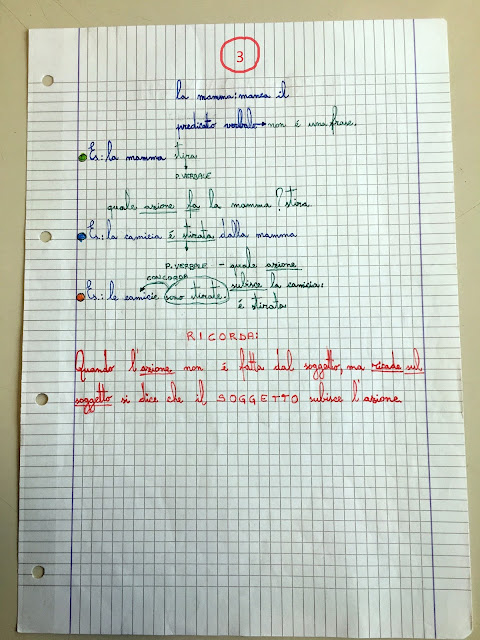 3
la mamma: manca il
predicato verbale → non é una frase.
Es: la mamma stira
P. VERBALE
quale azione fa la mamma? stira
Es: la camicia é stirata dalla mamma
P. VERBALE - quale azione
CONCORDA subisce la camicia:
Es: le camicie sono stirate. é stirata
RICORDA:
Quando l'azione non é fatta dal soggetto, ma ricade sul
soggetto si dice che il SOGGETTO subisce l'azione.